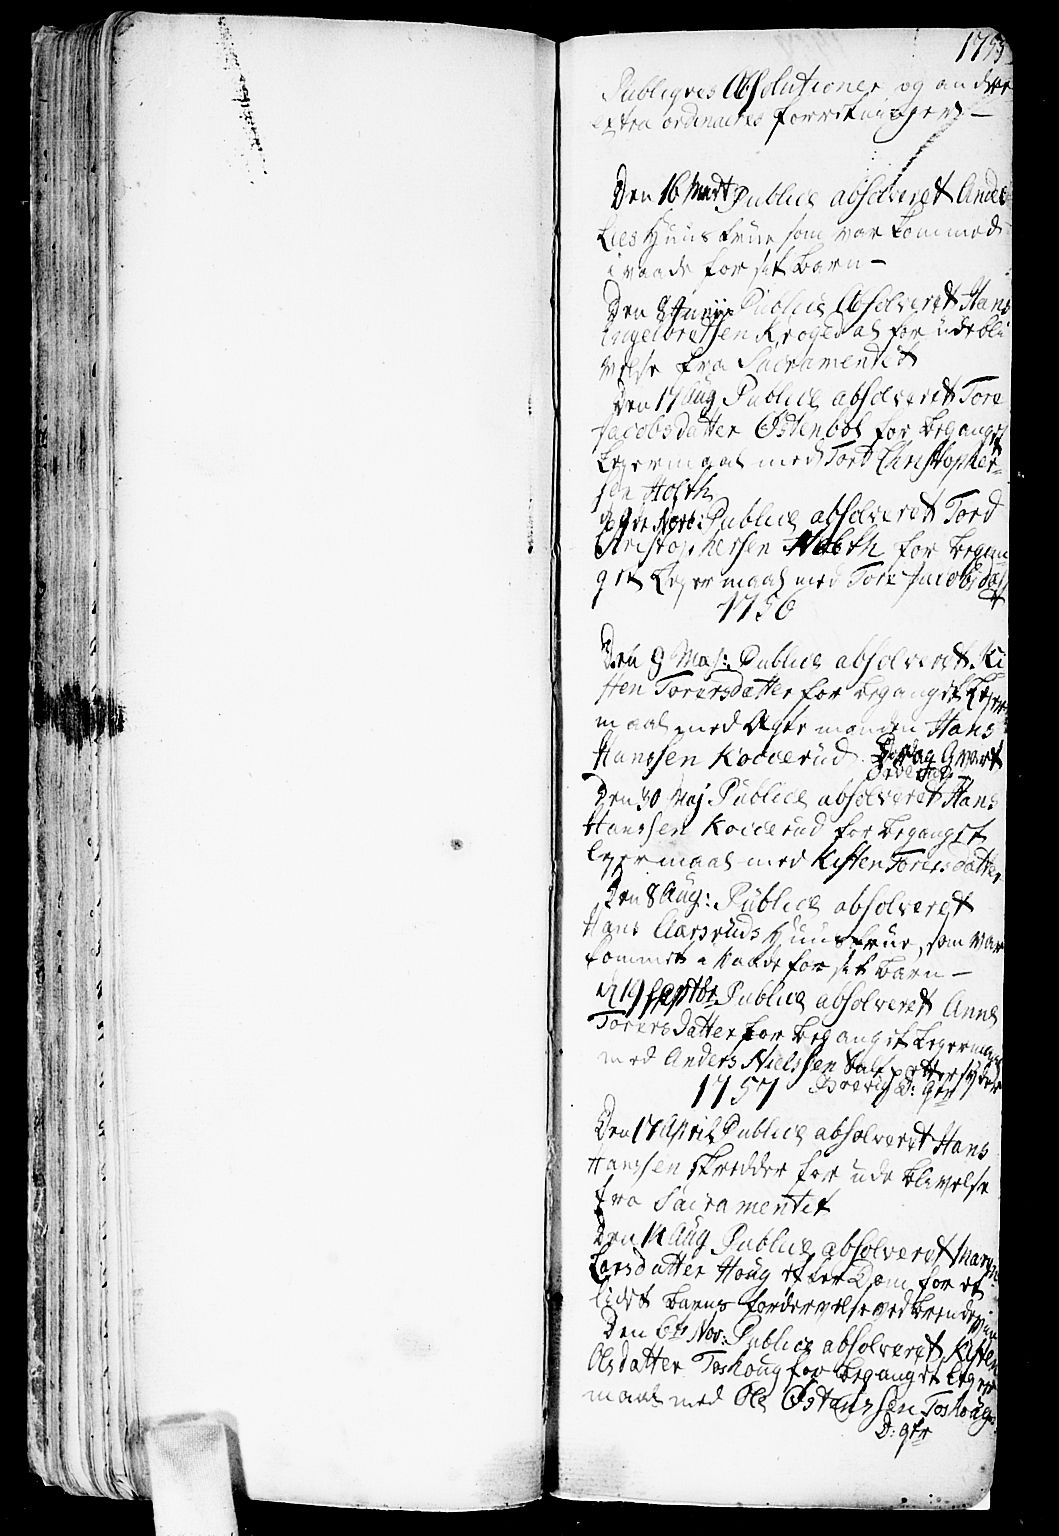 1755
Publiqves Absolutioner og andre
extra ordinaires forretninger —
Den 16 Mart Publice absolveret Anders
Lies Huustrue som var kommed
i vaade for sit barn —
Den 8 Junii Publice Absolveret Hans
Engelbretsen Krogedal for udebli
velse fra Sacramentet
Den 17 Aug Publice absolveret Tore
Jacobsdatter Østenbøl for beganget
Lejermaal med Tord Christopher-
sen Holth
Novb: Publice absolveret Tord
Christophersen Holth for began
get Lejermaal med Tore Jacobsdat
1756
Den 9 Maj: Publice absolveret Ki
sten Torersdatter for beganget Lejer
maal med Ægte manden Hans
Hanssen Kollerud
Den 30 Maj Publice absolveret Hans
Hanssen Kollerud for beganget
lejermaal med Kisten Torersdatter
Den 8 Aug: Publice absolveret
Hans Aarsruds Huustrue, som var
kommet i Vaade for sit barn —
d 19 Septbr Publice absolveret Anne
Torersdatter for beganget Lejermaal
med Anders Nielssen Salpettersyder
1757
Den 17 April Publice absolveret Hans
Hanssen skredder for udeblivelse
fra Sacramentet
Den 14 Aug Publice absolveret Maren
Larsdatter Houg efter Dom for et
lidet barns fordervelse ved brendeviin
Den 6te Nov: Publice absolveret Kisten
Olsdatter Toshoug for beganget Lejer
maal med Ole Østenssen Toshoug
D: gtr